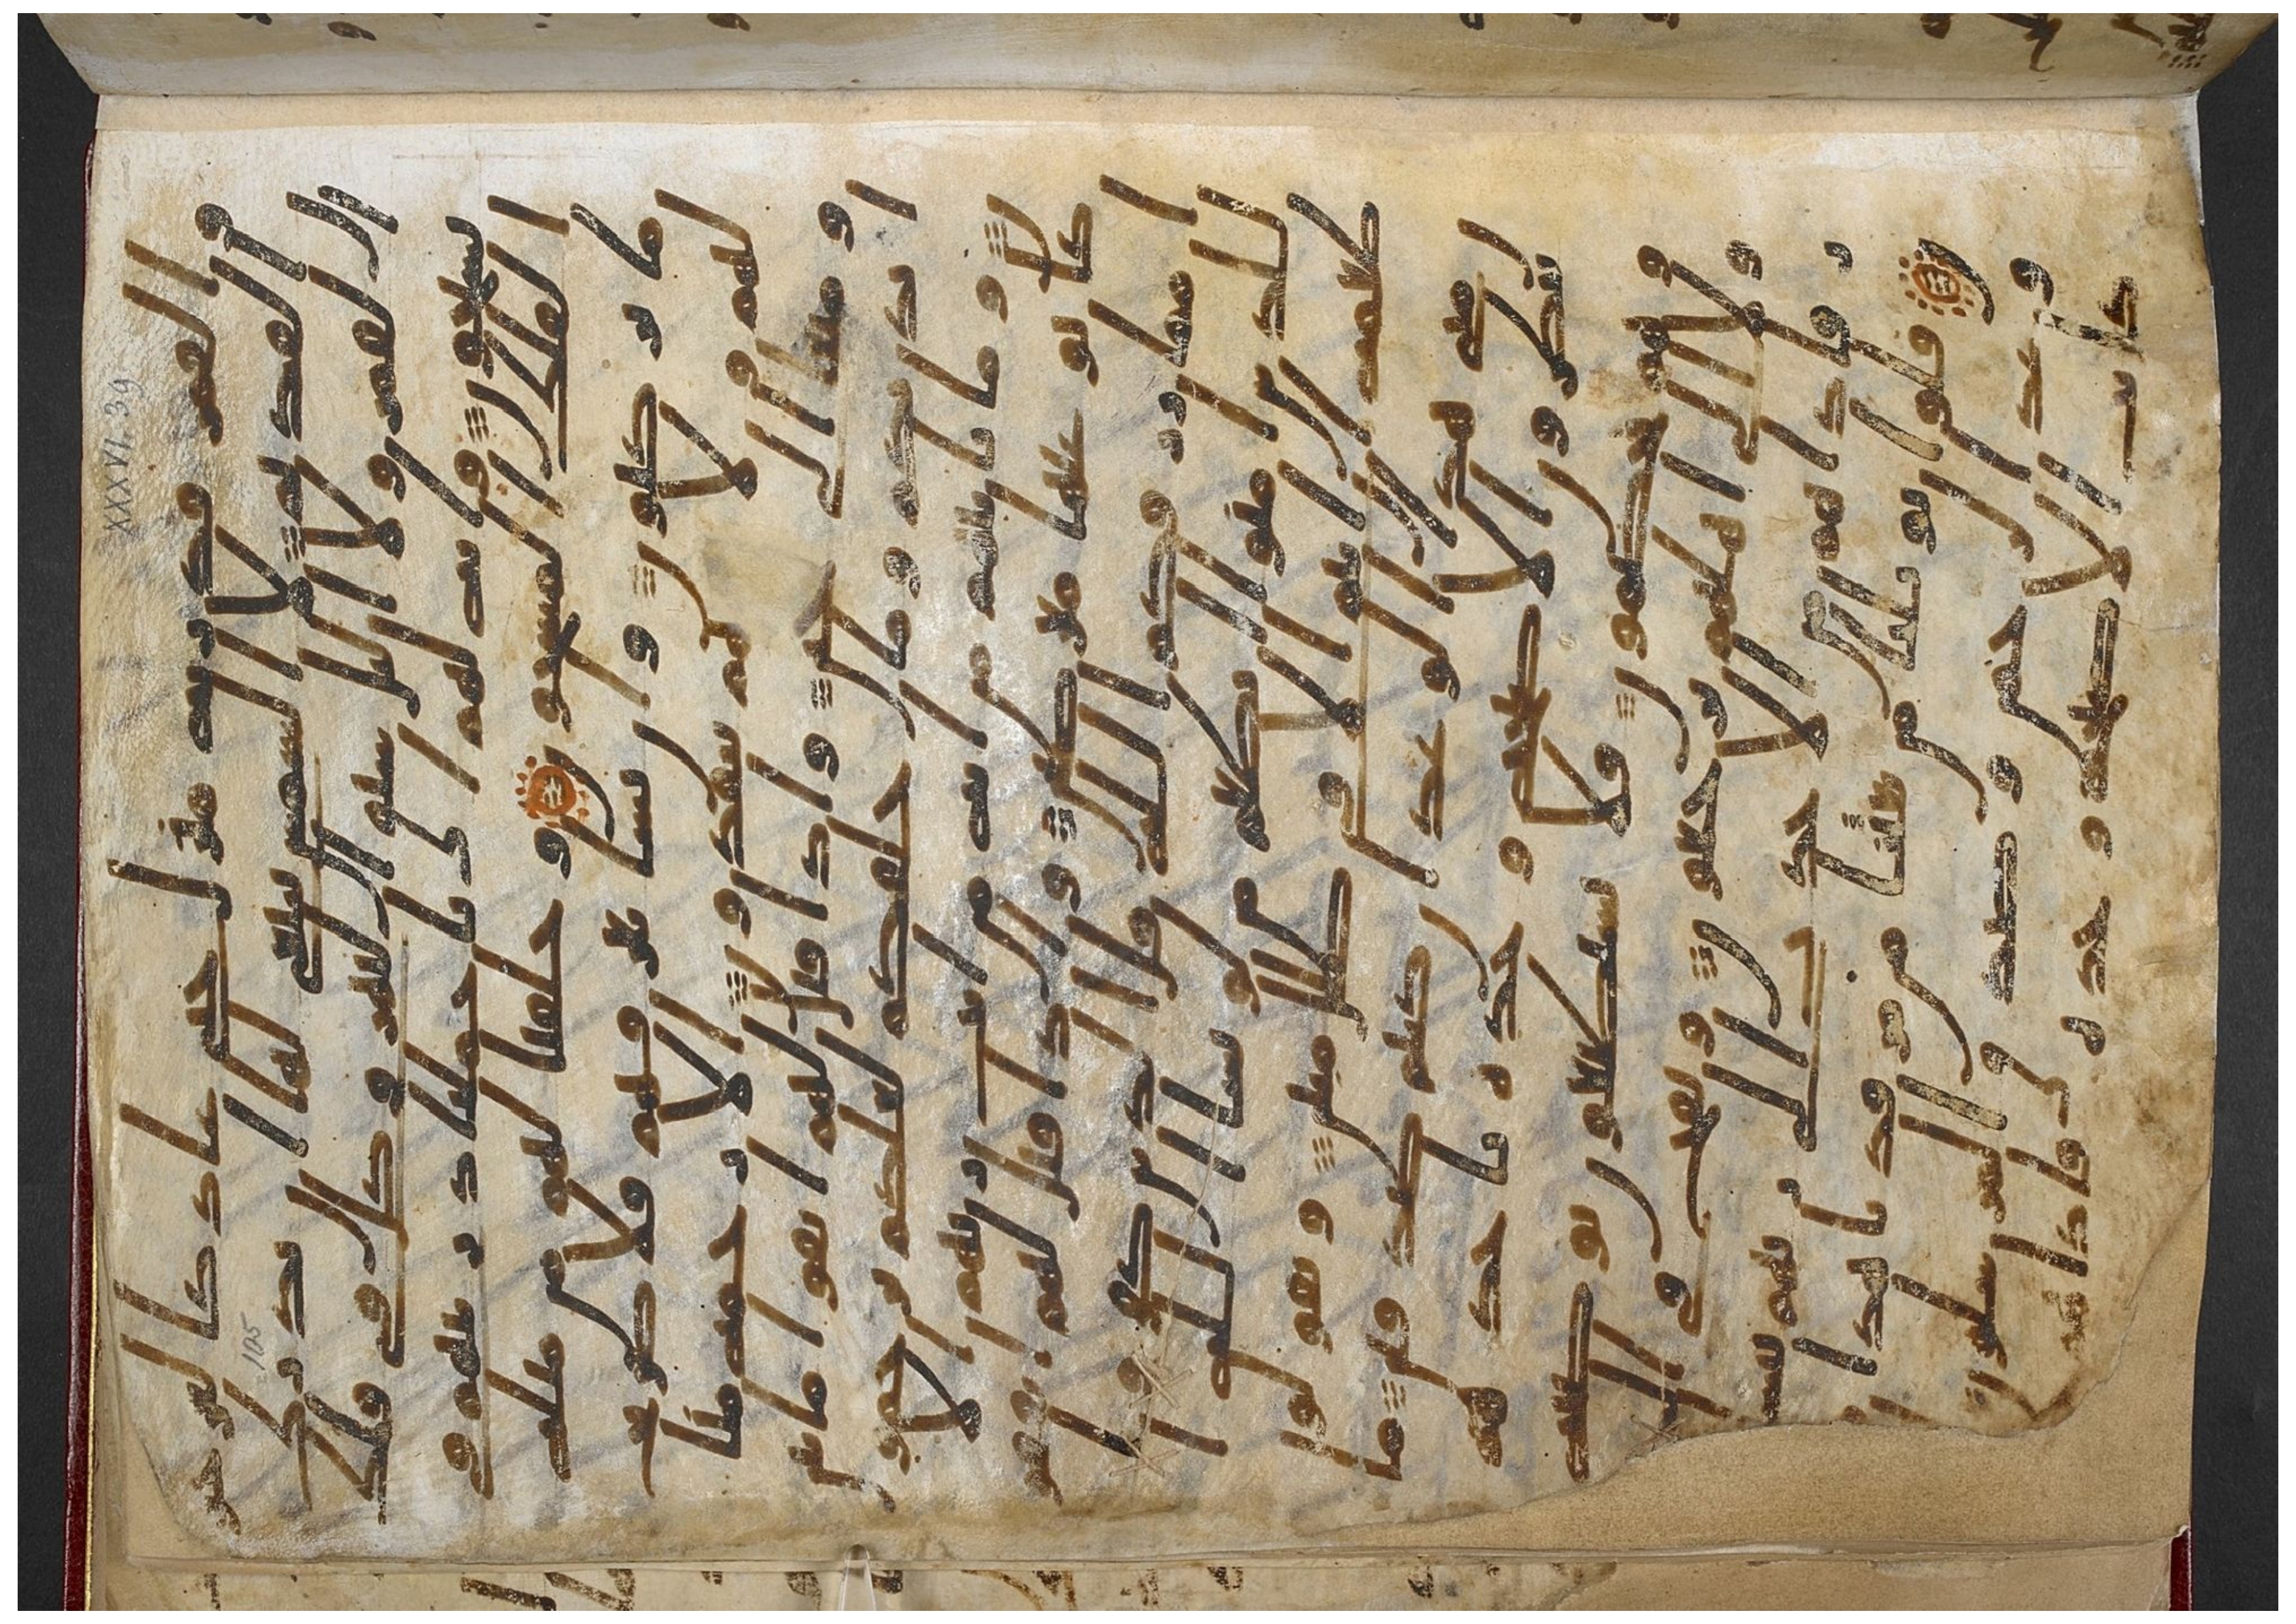 القمر قدرنه منزل حتى عاد كالعرجو
ن القديم لا الشمس ينبغي لها ان تدرك
القمر ولا اليل سابق النهار وكل في فلك
يسبحون وايه لهم انا حملنا ذريتهم في
الفلك المشحون وخلقنا لهم من مثله
ما يركبون وان نشا نغرقهم فلا صريخ
لهم ولا هم ينقذون الا رحمه منا
ومتعا الى حين واذا قيل لهم اتقوا ما بين
ايديكم وما خلفكم لعلكم ترحمو
ن وما تاتيهم من ايه من ايت ربهم الا
كانوا عنها معرضين واذا قيل لهم
انفقوا مما رزقكم الله قال الذين كفروا
للذين امنوا انطعم من لو يشا الله ا
طعمه ان انتم الا في ضلل مبين ويقولو
ن متى هذا الوعد ان كنتم صدقين ما
ينظرون الا صيحه وحده تاخذهم
وهم يخصمون فلا يستطيعون توصيه
ولا الى اهلهم يرجعون ونفخ في الصو
ر فاذا هم من الاجدث الى ربهم ينسلو
ن قالوا يويلنا من بعثنا من مرقدنا هذا
ما وعد الرحمن وصدق المرسلون
ان كانت الا صيحه وحده فاذا هم
XXXVI. 39